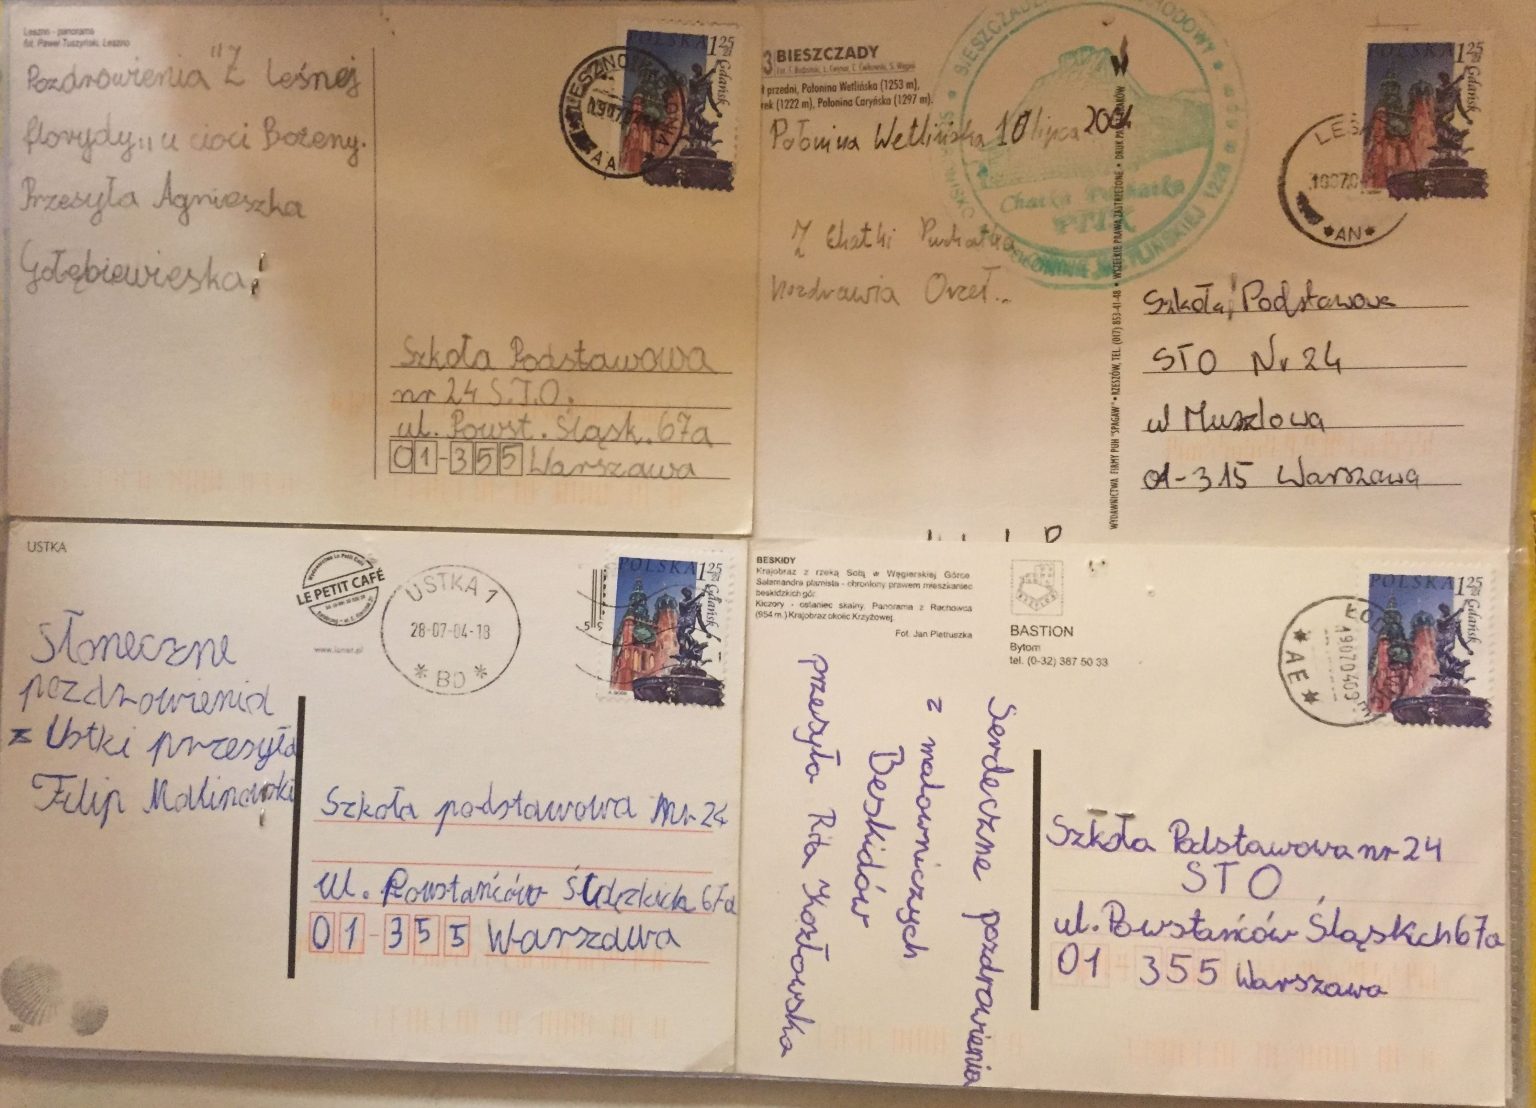 Leszno - panorama
fot. Paweł Tuszyński, Leszno
Pozdrowienia "Z leśnej
florydy" u cioci Bożeny.
Przesyła Agnieszka
Gołębiewieska.
POLSKA 1 25 zł
Gdańsk
LESZNO
AA
Szkoła Podstawowa
nr 24 S.T.O.
ul. Powst. Śląsk. 67a
01-355 Warszawa
3 BIESZCZADY
przedni, Połonina Wetlińska (1253 m),
rek (1222 m), Połonina Caryńska (1297 m).
Połonina Wetlińska 10 lipca 2004
Z Chatki Puchatka
pozdrawia Orzeł...
Chatka Puchatka
PTTK
WYDAWNICTWA FIRMY PUH "SPAGAW" • RZESZÓW, TEL. (017) 853-41-48 • WSZELKIE PRAWA ZASTRZEŻONE • DRUK
POLSKA 1 25 zł
Gdańsk
*AN*
Szkoła Podstawowa
STO Nr 24
ul Muszlowa
01-315 Warszawa
USTKA
LE PETIT CAFÉ
USTKA 1
28-07-04-18
* BD *
POLSKA 1 25 zł
Gdańsk
Słoneczne
pozdrowienia
z Ustki przesyła
Filip Malinowski
Szkoła podstawowa nr 24
ul. Powstańców Śląskich 67a
01-355 Warszawa
BESKIDY
Krajobraz z rzeką Sołą w Węgierskiej Górce
Salamandra plamista - chroniony prawem mieszkaniec
beskidzkich gór.
Kiczory - ostaniec skalny. Panorama z Rachowca
(954 m.) Krajobraz okolic Krzyżowej.
Fot. Jan Pietruszka
BASTION
Bytom
tel. (0-32) 387 50 33
POLSKA 1 25 zł
Gdańsk
* AE *
Serdeczne pozdrowienia
z malowniczych
Beskidów
przesyła Rita Kozłowska
Szkoła Podstawowa nr 24
STO
ul. Powstańców Śląskich 67a
01 355 Warszawa